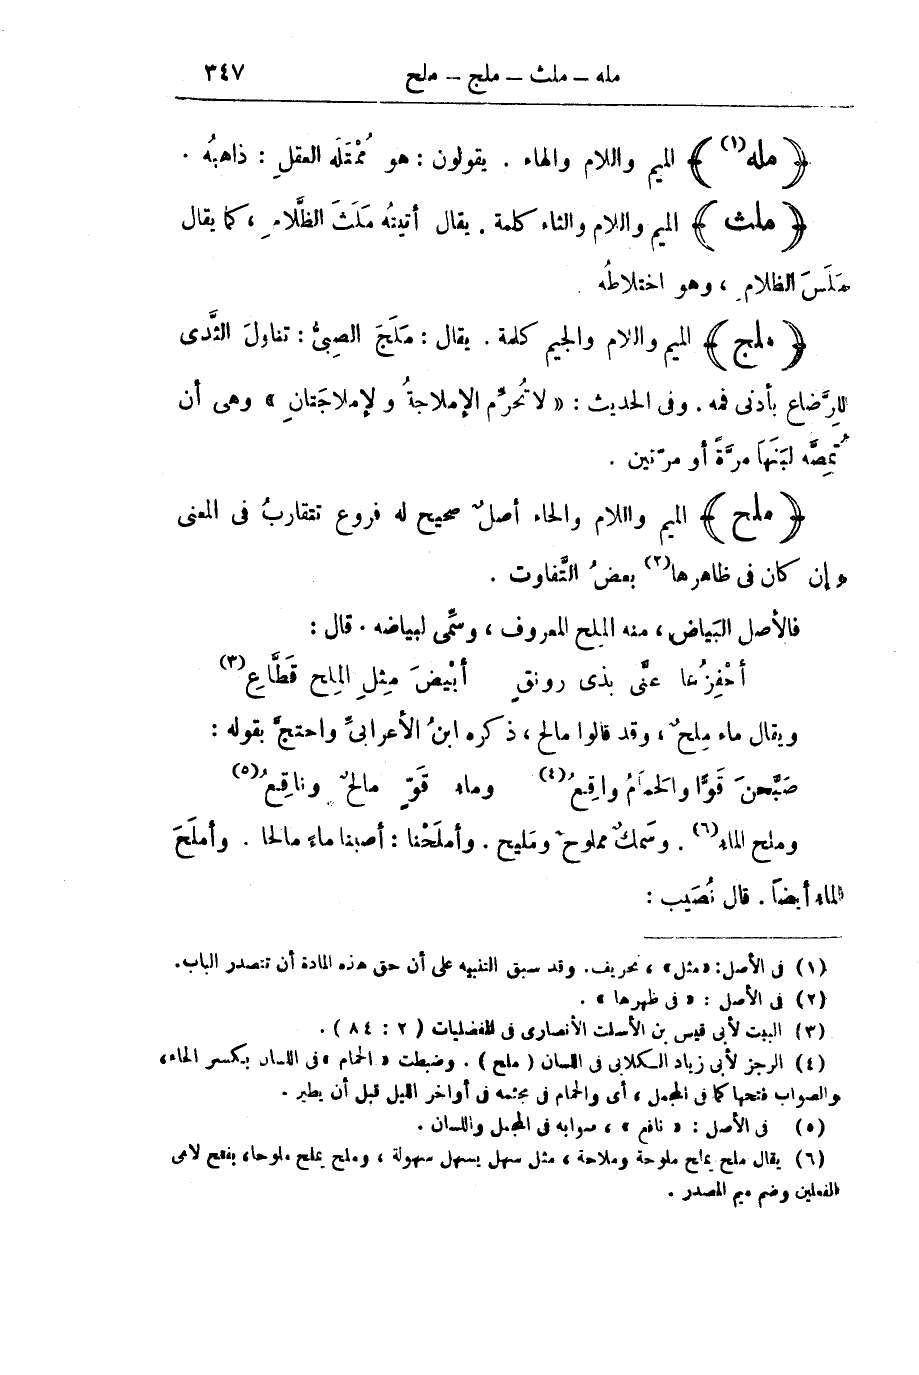 مله – ملث – ملج – ملح ٣٤٧
﴿ مله(١) ﴾ الميم واللام والهاء . يقولون : هو مُمْتَلَه العقلِ : ذاهبُه .
﴿ ملث ﴾ الميم واللام والثاء كلمة . يقال أتيتُه مَلَثَ الظَّلام ، كما يقال
مَلَسَ الظلام ، وهو اختلاطُه .
﴿ ملج ﴾ الميم واللام والجيم كلمة . يقال : مَلَجَ الصبىُّ : تناولَ الثَّدى
للرَّضاع بأدنى فمه . وفى الحديث : « لا تُحرِّم الإملاجةُ ولإملاجَتانِ » وهى أن
تُمِصَّه لبَنَهَا مرَّةً أو مرّتين .
﴿ ملح ﴾ الميم واللام والحاء أصلٌ صحيح له فروع تتقاربُ فى المعنى
وإن كان فى ظاهرها(٢) بعضُ التَّفاوت .
فالأصل البَياض ، منه المِلح المعروف ، وسمِّى لبياضه . قال :
أحْفِزُها عنَّى بذى رونقٍ أبْيضَ مِثلِ المِلح قَطَّاعِ(٣)
ويقال ماء مِلحٌ ، وقد قالوا مالح ، ذكره ابنُ الأعرابىِّ واحتجَّ بقوله :
صَبَّحنَ قَوًّا والحَمامُ واقِعُ(٤) وماء قَوٍّ مالحٌ وناقِعُ(٥)
وملح الماء(٦) . وسَمكٌ مملوحٌ ومَليح . وأملَحْنا : أصبنا ماءً مالحا . وأملَحَ
الماء أيضاً . قال نُصَيب :
(١) فى الأصل : «مثل» ، تحريف . وقد سبق التنبيه على أن حق هذه المادة أن تتصدر الباب .
(٢) فى الأصل : « فى ظهرها » .
(٣) البيت لأبى قيس بن الأسلت الأنصارى فى المفضليات ( ٢ : ٨٤ ) .
(٤) الرجز لأبى زياد الكلابى فى اللسان ( ملح ) . وضبطت « الحمام » فى اللسان بكسر الحاء ،
والصواب فتحها كما فى المجمل ، أى والحمام فى مجثمه فى أواخر الليل قبل أن يطير .
(٥) فى الأصل : « نافع » ، صوابه فى المجمل واللسان .
(٦) يقال ملح يملح ملوحة وملاحة ، مثل سهل يسهل سهولة ، وملح يملح ملوحا ، بفتح لامى
الفعلين وضم ميم المصدر .